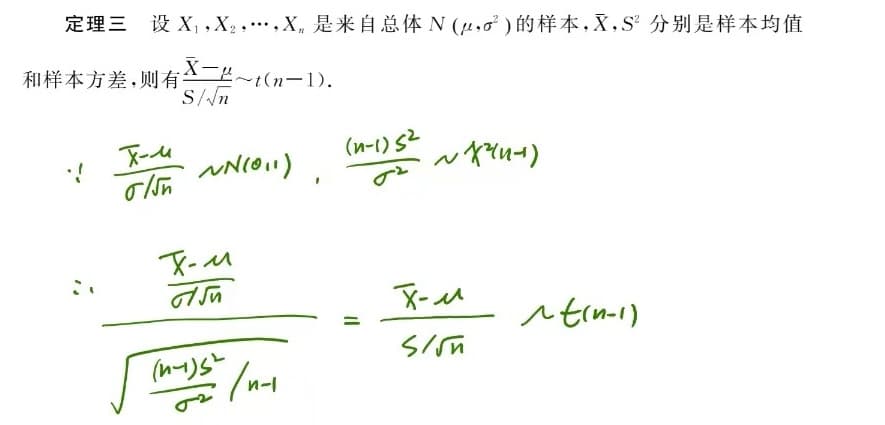 定理三 设 X₁,X₂,…,Xₙ 是来自总体 N(μ,σ²)的样本,X̄,S² 分别是样本均值
和样本方差,则有 (X̄−μ)/(S/√n) ~ t(n−1).
∵ (X̄-μ)/(σ/√n) ~N(0,1), (n-1)S²/σ² ~ χ²(n-1)
∴ ((X̄-μ)/(σ/√n))/√((n-1)S²/σ² /n-1) = (X̄-μ)/(S/√n) ~ t(n-1)